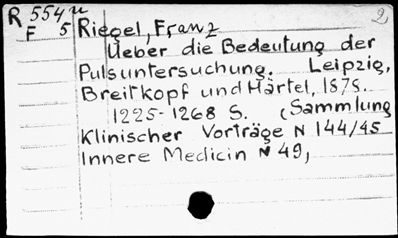 R 554u
F 5 Riegel, Franz 2,
Ueber die Bedeutung der
Pulsuntersuchung. Leipzig,
Breitkopf und Härtel, 1878.
1225-1268 S. (Sammlung
Klinischer Vorträge N 144/45
Innere Medicin N 49,